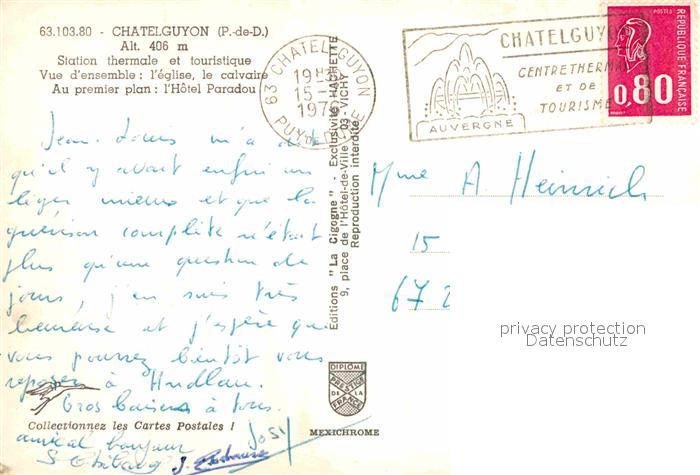 63.103.80 - CHATELGUYON (P.-de-D.)
Alt. 406 m
Station thermale et touristique
Vue d'ensemble : l'église, le calvaire
Au premier plan : l'Hôtel Paradou
63 CHATELGUYON
15-
PUY DE DOME
CHATELGUYON
CENTRE THERMAL
ET DE
TOURISME
AUVERGNE
POSTES
REPUBLIQUE FRANÇAISE
0,80
Jean-Louis m'a dit
qu'il y avait enfin un
léger mieux et que la
guérison complète n'était
plus qu'une question de
jours, j'en suis très
heureuse et j'espère que
vous pourrez bientôt vous
reposer à
Gros baisers à tous.
Josy
amical bonjour
Collectionnez les Cartes Postales !
Editions "La Cigogne" - Exclusivité HACHETTE
9, place de l'Hôtel-de-Ville - 03-VICHY
Reproduction interdite
DIPLOME
PRESTIGE
DE LA
FRANCE
MEXICHROME
Mme A. Heinrich
15
67
privacy protection
Datenschutz